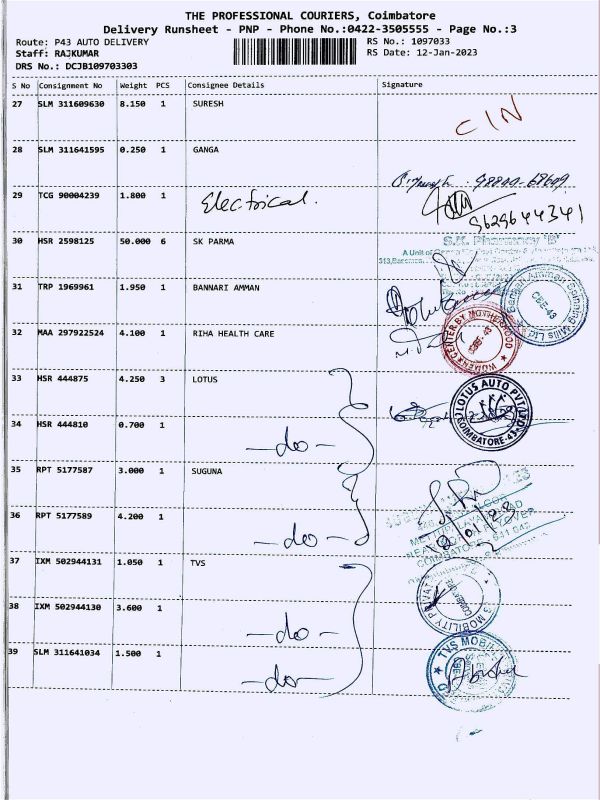 THE PROFESSIONAL COURIERS, Coimbatore
Delivery Runsheet - PNP - Phone No.:0422-3505555 - Page No.:3
Route: P43 AUTO DELIVERY RS No.: 1097033
Staff: RAJKUMAR RS Date: 12-Jan-2023
DRS No.: DCJB109703303
S No Consignment No Weight PCS Consignee Details Signature
27 SLM 311609630 8.150 1 SURESH CIN
28 SLM 311641595 0.250 1 GANGA
29 TCG 90004239 1.800 1 Electrical. 9629644341
30 HSR 2598125 50.000 6 SK PARMA S.K. Pharmacy 'B'
A Unit of
31 TRP 1969961 1.950 1 BANNARI AMMAN Bannari Amman Spinning Mills Ltd CBE-43
32 MAA 297922524 4.100 1 RIHA HEALTH CARE WOMEN'S CENTER BY MOTHERHOOD CBE-43
33 HSR 444875 4.250 3 LOTUS LOTUS AUTO PVT LTD COIMBATORE-43
34 HSR 444810 0.700 1 -do-
35 RPT 5177587 3.000 1 SUGUNA
36 RPT 5177589 4.200 1 -do- 12/01/23
COIMBATORE - 641 043
37 IXM 502944131 1.050 1 TVS MOBILITY PRIVATE
38 IXM 502944130 3.600 1 -do-
39 SLM 311641034 1.500 1 -do- TVS MOBILITY